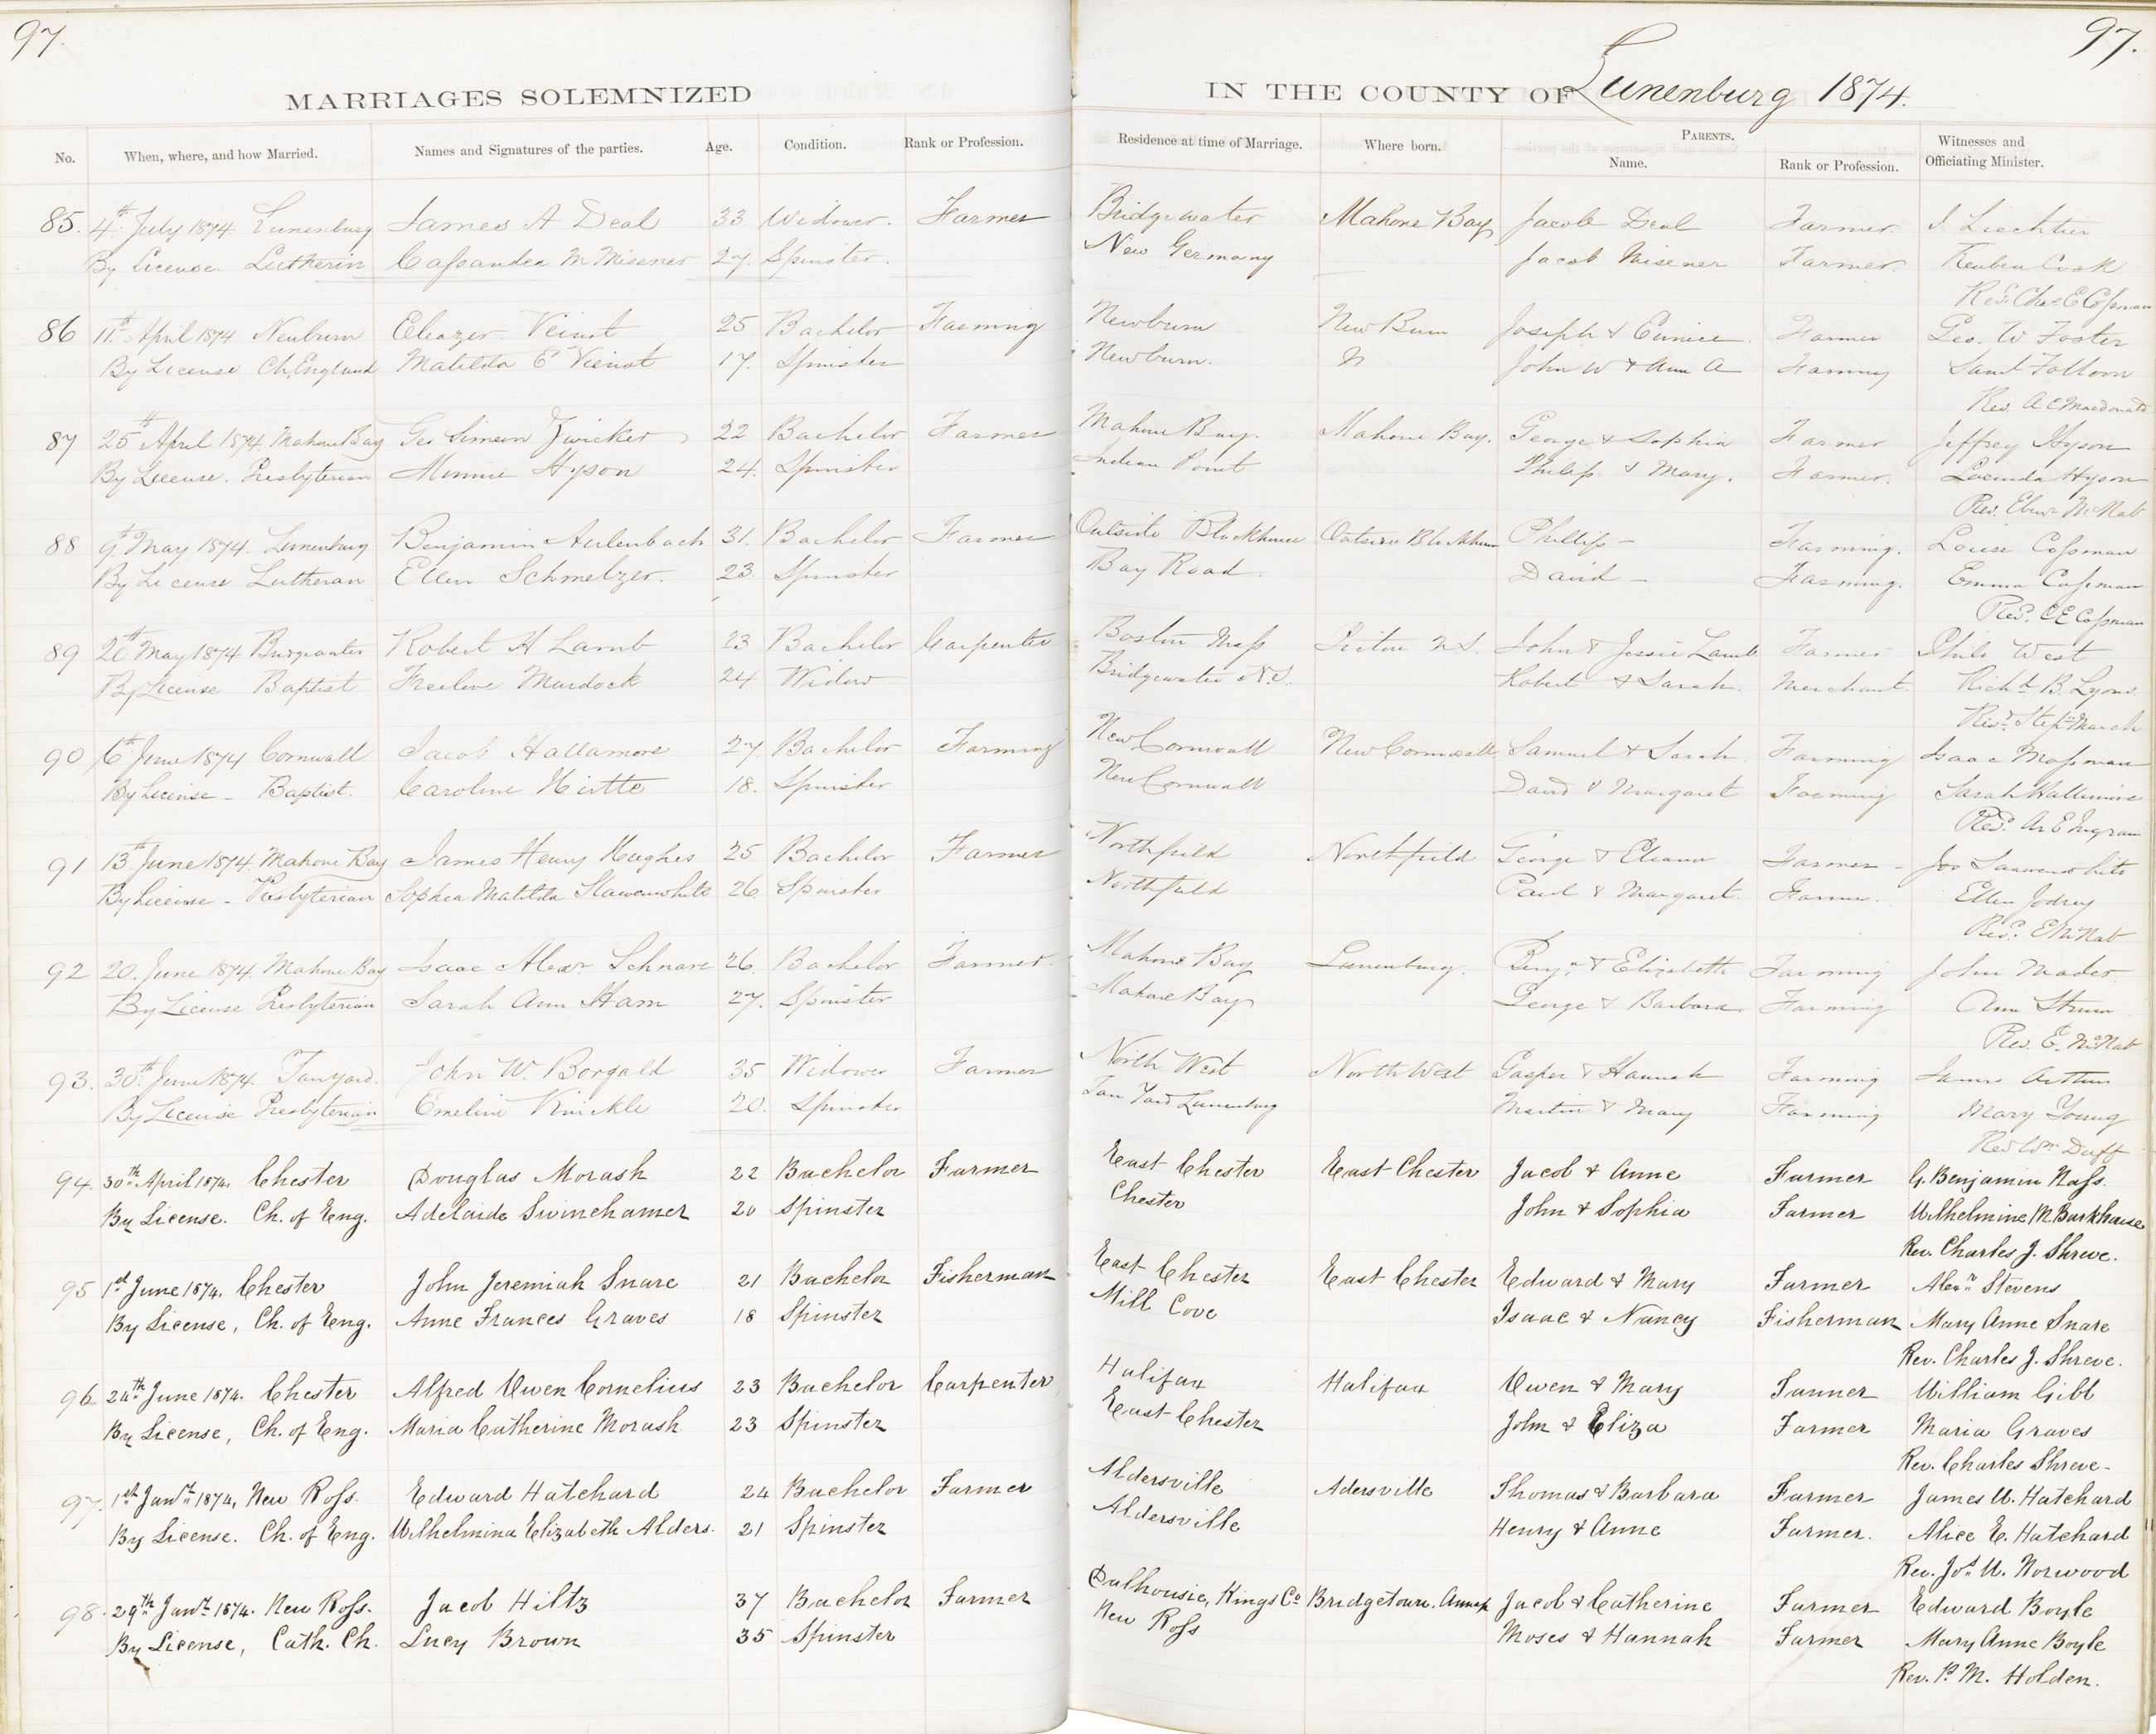 97.
97.
MARRIAGES SOLEMNIZED IN THE COUNTY OF Lunenburg 1874.
No. When, where, and how Married. Names and Signatures of the parties. Age. Condition. Rank or Profession. Residence at time of Marriage. Where born. PARENTS. Name. Rank or Profession. Witnesses and Officiating Minister.
85. 4th July 1874 Lunenburg James A Deal 33 Widower. Farmer Bridgewater Mahone Bay Jacob Deal Farmer. J Liechtier
By License. Lutherin Cassandra M Misener 27. Spinster. New Germany Jacob Misener Farmer. Reuben Cook
Revd. Chas E Cossman
86 11th April 1874 Newburn Eleazer Veinot 25 Bachelor Farming Newburn New Burn Joseph & Eunice Farmer Geo. W Foster
By License Ch. England Matilda E Veinot 17. Spinster Newburn. N John W & Ann A Farming Saml Falloon
Rev. A C Macdonald
87 25th April 1874 Mahone Bay Geo Simeon Zwicker 22 Bachelor Farmer Mahone Bay. Mahone Bay. George & Sophia Farmer Jeffrey Hyson
By License. Presbyterian Minnie Hyson 24. Spinster Indian Point Philip & Mary. Farmer. Lucinda Hyson
Rev. Ebenr McNab
88 9th May 1874. Lunenburg Benjamin Aulenbach 31. Bachelor Farmer Outside Blockhouse Outside Blockhouse Phillip - Farming. Louise Cossman
By License Lutheran Ellen Schmelzer. 23. Spinster Bay Road. David - Farming. Emma Cossman
Revd. C E Cossman
89 20th May 1874 Bridgewater Robert H Lamb 23 Bachelor Carpenter Boston Mass Pictou N.S. John & Jessie Lamb Farmer Phile West
By License Baptist Freelove Murdock 24 Widow Bridgewater N.S. Robert & Sarah. Merchant. Richd B. Lyons
Revd. Stepn March
90 6th June 1874 Cornwall Jacob Hallamore 27. Bachelor Farming New Cornwall New Cornwall Samuel & Sarah Farming Isaac Mossman
By License - Baptist. Caroline Hirtte 18. Spinster New Cornwall David & Margaret Farming Sarah Hallimore
Revd. A E Ingram
91 13th June 1874 Mahone Bay James Henry Hughes 25 Bachelor Farmer Northfield Northfield George & Eleanor Farmer - Jos Slauenwhite
By License - Presbyterian Sophia Matilda Slawenwhite 26 Spinster Northfield Paul & Margaret. Farmer. Ellen Jodrey
Revd. E McNab
92 20. June 1874 Mahone Bay Isaac Alexr Schnare 26. Bachelor Farmer Mahone Bay Lunenburg. Benjn & Elizabeth Farming John Mader.
By License Presbyterian Sarah Ann Ham 27. Spinster Mahone Bay George & Barbara Farming Ann Strum
Rev. E. McNab
93. 30th June 1874. Tanyard. John W. Borgald 35 Widower Farmer North West North West Gasper & Hannah Farming James Arthur
By License Presbyterian Emeline Knickle 20. Spinster Tan Yard Lunenburg Martin & Mary Farming Mary Young
Rev Wm Duff
94. 30th April 1874, Chester Douglas Morash 22 Bachelor Farmer East Chester East Chester Jacob & Anne Farmer G. Benjamin Nass.
By License. Ch. of Eng. Adelaide Swinehamer 20 Spinster Chester John & Sophia Farmer Wilhelmine M. Barkhouse
Rev. Charles J. Shreve.
95 1st June 1874, Chester John Jeremiah Snare 21 Bachelor Fisherman East Chester East Chester Edward & Mary Farmer Alexr. Stevens
By License, Ch. of Eng. Anne Frances Graves 18 Spinster Mill Cove Isaac & Nancy Fisherman Mary Anne Snare
Rev. Charles J. Shreve.
96 24th June 1874. Chester Alfred Owen Cornelius 23 Bachelor Carpenter Halifax Halifax Owen & Mary Tanner William Gibb
By License, Ch. of Eng. Maria Catherine Morash 23 Spinster East Chester John & Eliza Farmer Maria Graves
Rev. Charles Shreve -
97. 1st Jany. 1874, New Ross. Edward Hatchard 24 Bachelor Farmer Aldersville Adersville Thomas & Barbara Farmer James W. Hatchard
By License. Ch. of Eng. Wilhelmina Elizabeth Alders. 21 Spinster Aldersville Henry & Anne Farmer. Alice E. Hatchard
Rev. Jos. W. Norwood
98. 29th Jany. 1874. New Ross. Jacob Hiltz 37 Bachelor Farmer Dalhousie, Kings Co. Bridgetown. Annap Jacob & Catherine Farmer Edward Boyle
By License, Cath. Ch. Lucy Brown 35 Spinster New Ross Moses & Hannah Farmer Mary Anne Boyle
Rev. P. M. Holden.